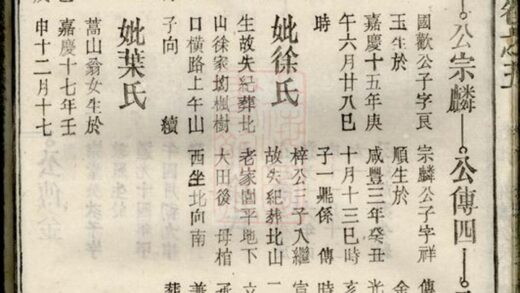 卷之五
公宗麟
國歡公子字艮
玉生於
嘉慶十五年庚
午六月廿八巳
時
妣徐氏
生故失紀葬北
山徐家坳楓樹
口橫路上午山
子向 續
妣葉氏
蒿山翁女生於
嘉慶十七年壬
申十二月十七
公傳四
宗麟公子字祥
順生於
咸豐三年癸丑
十月十三巳時
子一鼎係傳
梓公三子入繼
故失紀葬北山
老家園平地下
大田後 母棺
西坐北向南
傳
金
光
亥
時